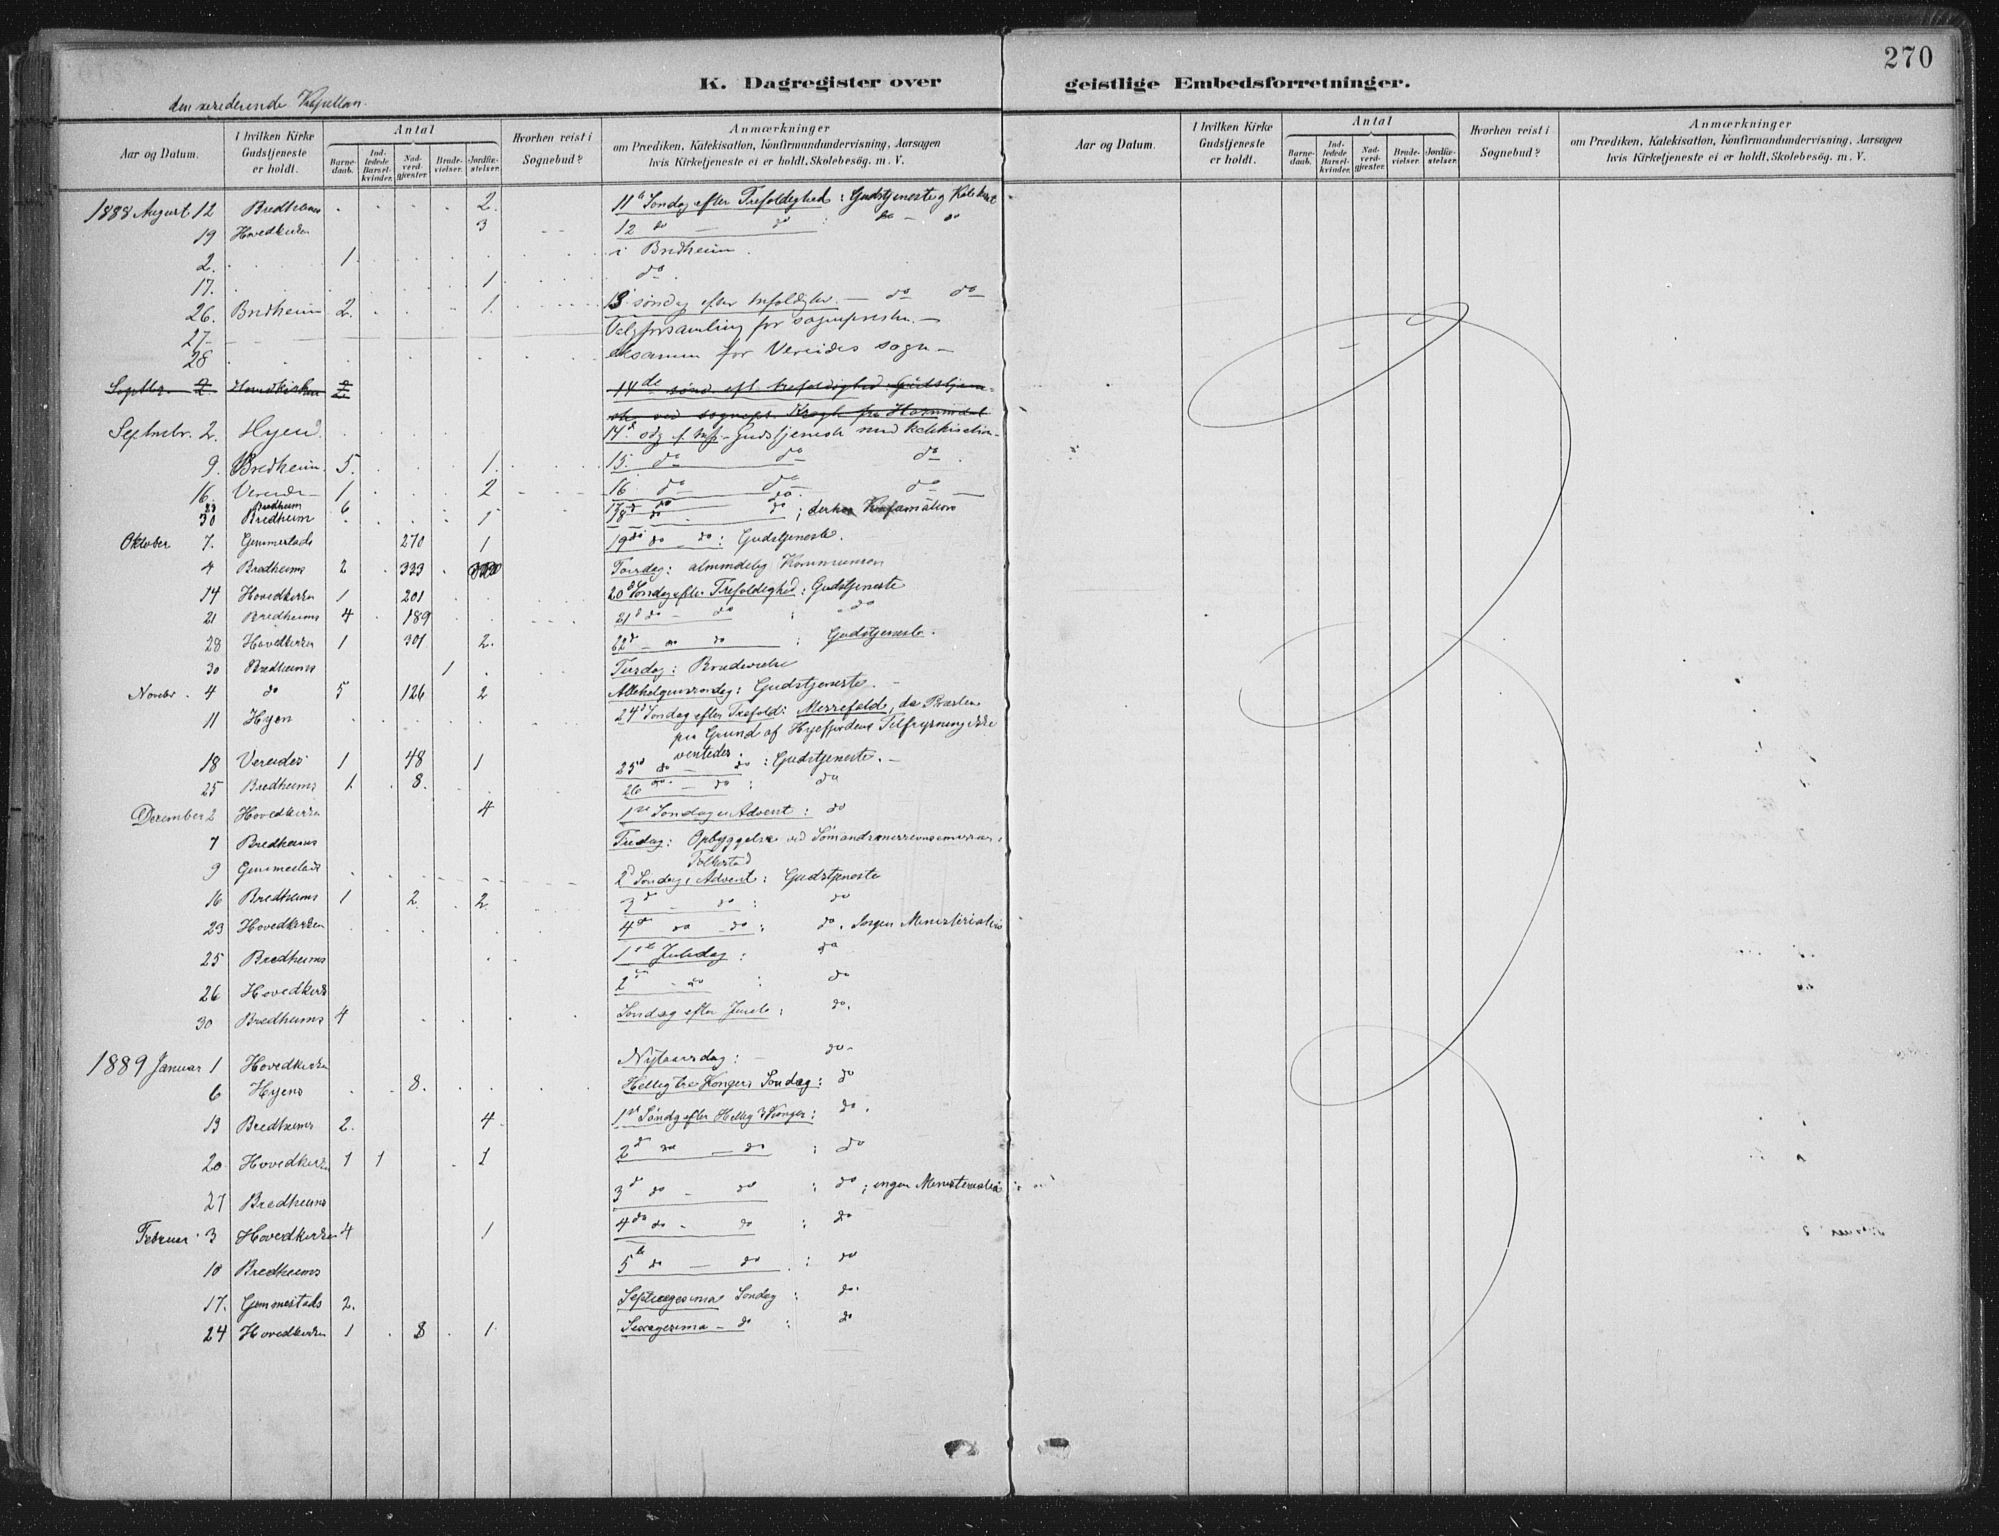 270
K. Dagregister over geistlige Embedsforretninger.
den Kapellan.
Aar og Datum. | I hvilken Kirke Gudstjeneste er holdt. | Antal | Barne-daab. | Ind-ledede Barsel-kvinder. | Nad-verd-gjester. | Brude-vielser. | Jordfæ-stelser. | Hvorhen reist i Sognebud? | Anmærkninger om Prædiken, Katekisation, Konfirmandundervisning, Aarsagen hvis Kirketjeneste ei er holdt, Skolebesög. m. V.
Aar og Datum. | I hvilken Kirke Gudstjeneste er holdt. | Antal | Barne-daab. | Ind-ledede Barsel-kvinder. | Nad-verd-gjester. | Brude-vielser. | Jordfæ-stelser. | Hvorhen reist i Sognebud? | Anmærkninger om Prædiken, Katekisation, Konfirmandundervisning, Aarsagen hvis Kirketjeneste ei er holdt, Skolebesög. m. V.
1888 August 12 Bredheims 2. 11 Søndag efter Trefoldighed: Gudstjeneste
19 Hovedkirken 3 12 do — do do — do
2. 1. i Bredheim.
17. 1. do.
26. Bredheim 2. 1. 13 søndag efter — do do
27 Valgforsamling for —
28 eksamen for Vereides sogn —
Septbr. 2 Hovedkirken 2 14de sønd eft trefoldighed Gudstjene-
ste ved sognepr. Krogh fra Hornindal
Septembr. 2. Hyen 14. Gudstjeneste med katekisation
9. Bredheim 5. 1. 15. do do do
16. Vereide 1 2 16 do do do
23 Bredheim 6 17 do do
30 Bredheim 1 18 do do ;
Oktober 7. Gemmestads 270 1 19 do do: Gudstjeneste.
4 Bredheims 2 333 Torsdag: almindelig
14 Hovedkirken 1 201 20 Søndag efter Trefoldighed: Gudstjeneste
21 Bredheims 4 189 21 do — do : do
28 Hovedkirken 1 301 2. 22 — do do : Gudstjeneste.
30 Bredheims 1 Tirsdag: Brudevielse
Novbr. 4 do 5 126 2 Allehelgenssøndag: Gudstjeneste. —
11 Hyen 24 Søndag efter Trefold: Messefald, da Præsten
paa Grund af Hyefjordens Tilfrysning ikke
ventedes.
18 Vereides 1 48 1 25 do — do : Gudstjeneste. —
25 Bredheims 1. 8. 26 do — do : do
December 2 Hovedkirken 4 1 Søndag i Advent: do
7 Bredheims Fredag: Opbyggelse ved
9 Gemmestads 2 Søndag i Advent: Gudstjeneste
16 Bredheims 1 2 2 3 — do : do
23 Hovedkirken 4 do — do : do. Ingen Ministerialia
25 Bredheims 1 Juledag : do
26 Hovedkirk 2 - do : do
30 Bredheims 4 Søndag efter : do.
1889 Januar 1 Hovedkirken Nytaarsdag: do
6 Hyens 8. Hellig tre Konger Søndag: do
13 Bredheims 2. 4 1 Søndg efter Hellig 3 Konger: do.
20 Hovedkirken 1 1 1 2 do — do : do
27 Bredheims 3 do - do : do ; ingen Ministerialia
Februar 3 Hovedkirken 4 1 4 do - do : do
10 Bredheims 5 do — do : do
17. Gemmestads 2. Septuagesima Søndag : do.
24 Hovedkirken 1 8 1 Sexagesima — do : do